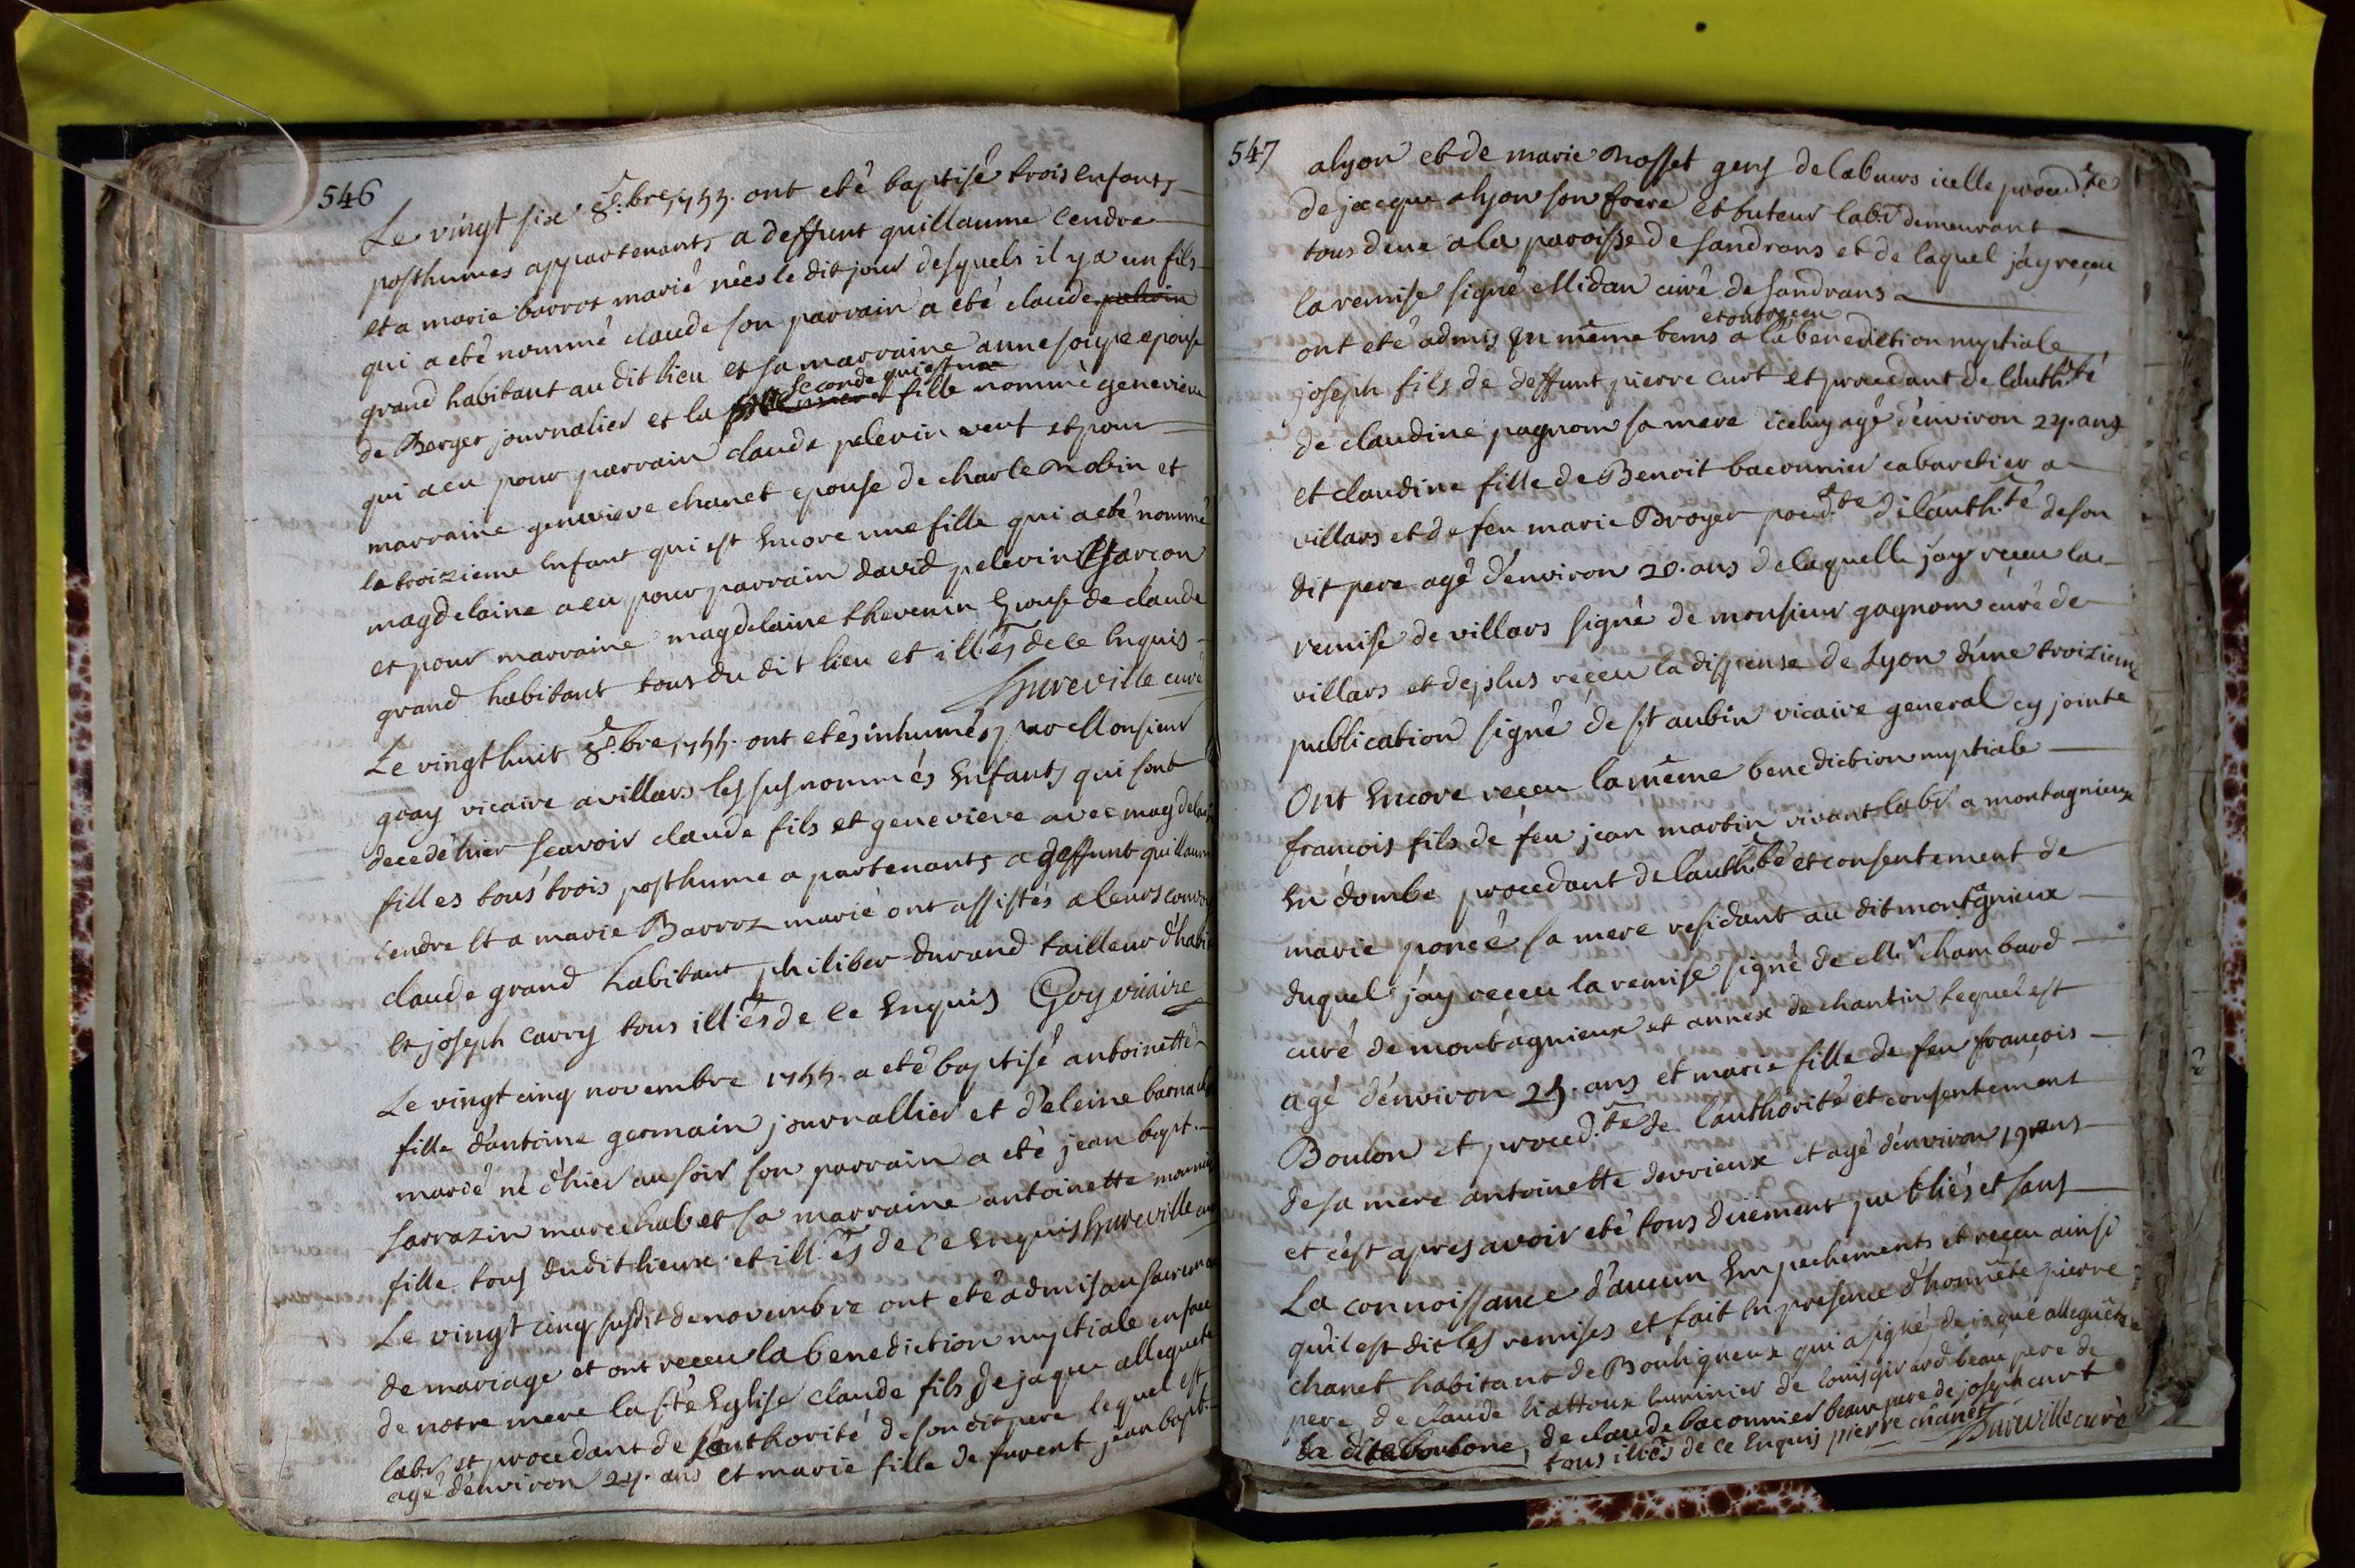 546
Le vingt six 8.bre 1755. ont eté baptisé trois enfants
posthumes appartenants a deffunt guillaume Cendre
et a marie barrot marié nées le dit jour desquels il y a un fils
qui a eté nommé claude son parrain a eté claude pelevin
grand habitant au dit lieu et sa marraine anne soipe epouse
seconde qui est une
de Berger journalier et la fille nommé genevieve
qui a eu pour parrain claude pelevin veuf et pour
marraine genevieve chanet epouse de charle Robin et
la troizieme Enfant qui est Encore une fille qui a eté nommé
magdelaine a eu pour parrain david pelevin Garcon
et pour marraine magdelaine thevenin Epouse de claude
grand habitant tous du dit lieu et ill.és de ce Enquis
Hureville curé
Le vingt huit 8.bre 1755. ont etés inhumés par Monsieur
goay vicaire a villars les susnommés Enfants qui sont
decedé hier scavoir claude fils et genevieve avec magdelai
filles tous trois posthume a partenants a deffunt guillaum
Cendre Et a marie Barroz marié ont assistés a leurs convoy
claude grand habitant philiber durand tailleur d'habi
et joseph Carry tous ill.és de ce Enquis Goy vicaire
Le vingt cinq novembre 1755. a eté baptisé antoinette
fille d'antoine germain journallier et d'eleine barna
marié né d'hier au soir son parrain a eté jean bapt.
sarrazin marechal et sa marraine antoinette monni
fille tous dudit lieux et ill.és de ce Enquis Hureville cu
Le vingt cinq susdit de novembre ont eté admis au sacrem
de mariage et ont receu la benediction nuptiale en face
de notre mere la ste Eglise claude fils de jaque allequet
labr. et procedant de l'authorité de son dit pere lequel est
agé d'environ 24. ans et marie fille de furent jean bapt.
547
alyon et de marie Rosset gens de labeurs icelle proced.te
de jacque alyon son frere et tuteur labr. demeurant
tous deux a la paroisse de sandrans et de laquel j'ay reçeu
la remise signé Midan curé de sandrans
et ont reçeu
ont eté admis En même tems a la benediction nuptiale
joseph fils de deffunt pierre curt et procedant de l'auth.té
de claudine pagnon sa mere iceluy agé d'environ 24. ans
et claudine fille de Benoit baconnier cabaretier a
villars et de feu marie Broyer poed.te de l'auth.té de son
dit pere agé d'environ 20. ans de laquelle j'ay receu la
remise de villars signé de monsieur gagnom curé de
villars et de plus reçeu la dispense de Lyon d'une troizieme
publication signé de st aubin vicaire general cy jointe
Ont Encore reçeu la même benediction nuptiale
francois fils de feu jean martin vivant labr. a montagnieux
En dombe procedant de l'auth.té et consentement de
marie poncé sa mere residant au dit montagnieux
duquel j'ay reçeu la remise signé de Mr chambard
curé de montagnieux et annex de chantin lequel est
agé d'environ 25. ans et marie fille de feu françois
Boulon et proced.te de l'authorité et consentement
de sa mere antoinette derrieux et agé d'environ 19 ans
et c'est apres avoir eté tous düement publiés et sans
La connoissance d'aucun Empechements et reçeu ainsi
qu'il est dit les remises et fait En presence d'honnête pierre
chanet habitant de Bouligneux qui a signé, de jaque allequet
pere de claude liattoux luminier de louis girard beau pere de
la dite boulone, de claude baconnier beau pere de joseph curt
tous illés de ce Enquis pierre chanet Hureville curé